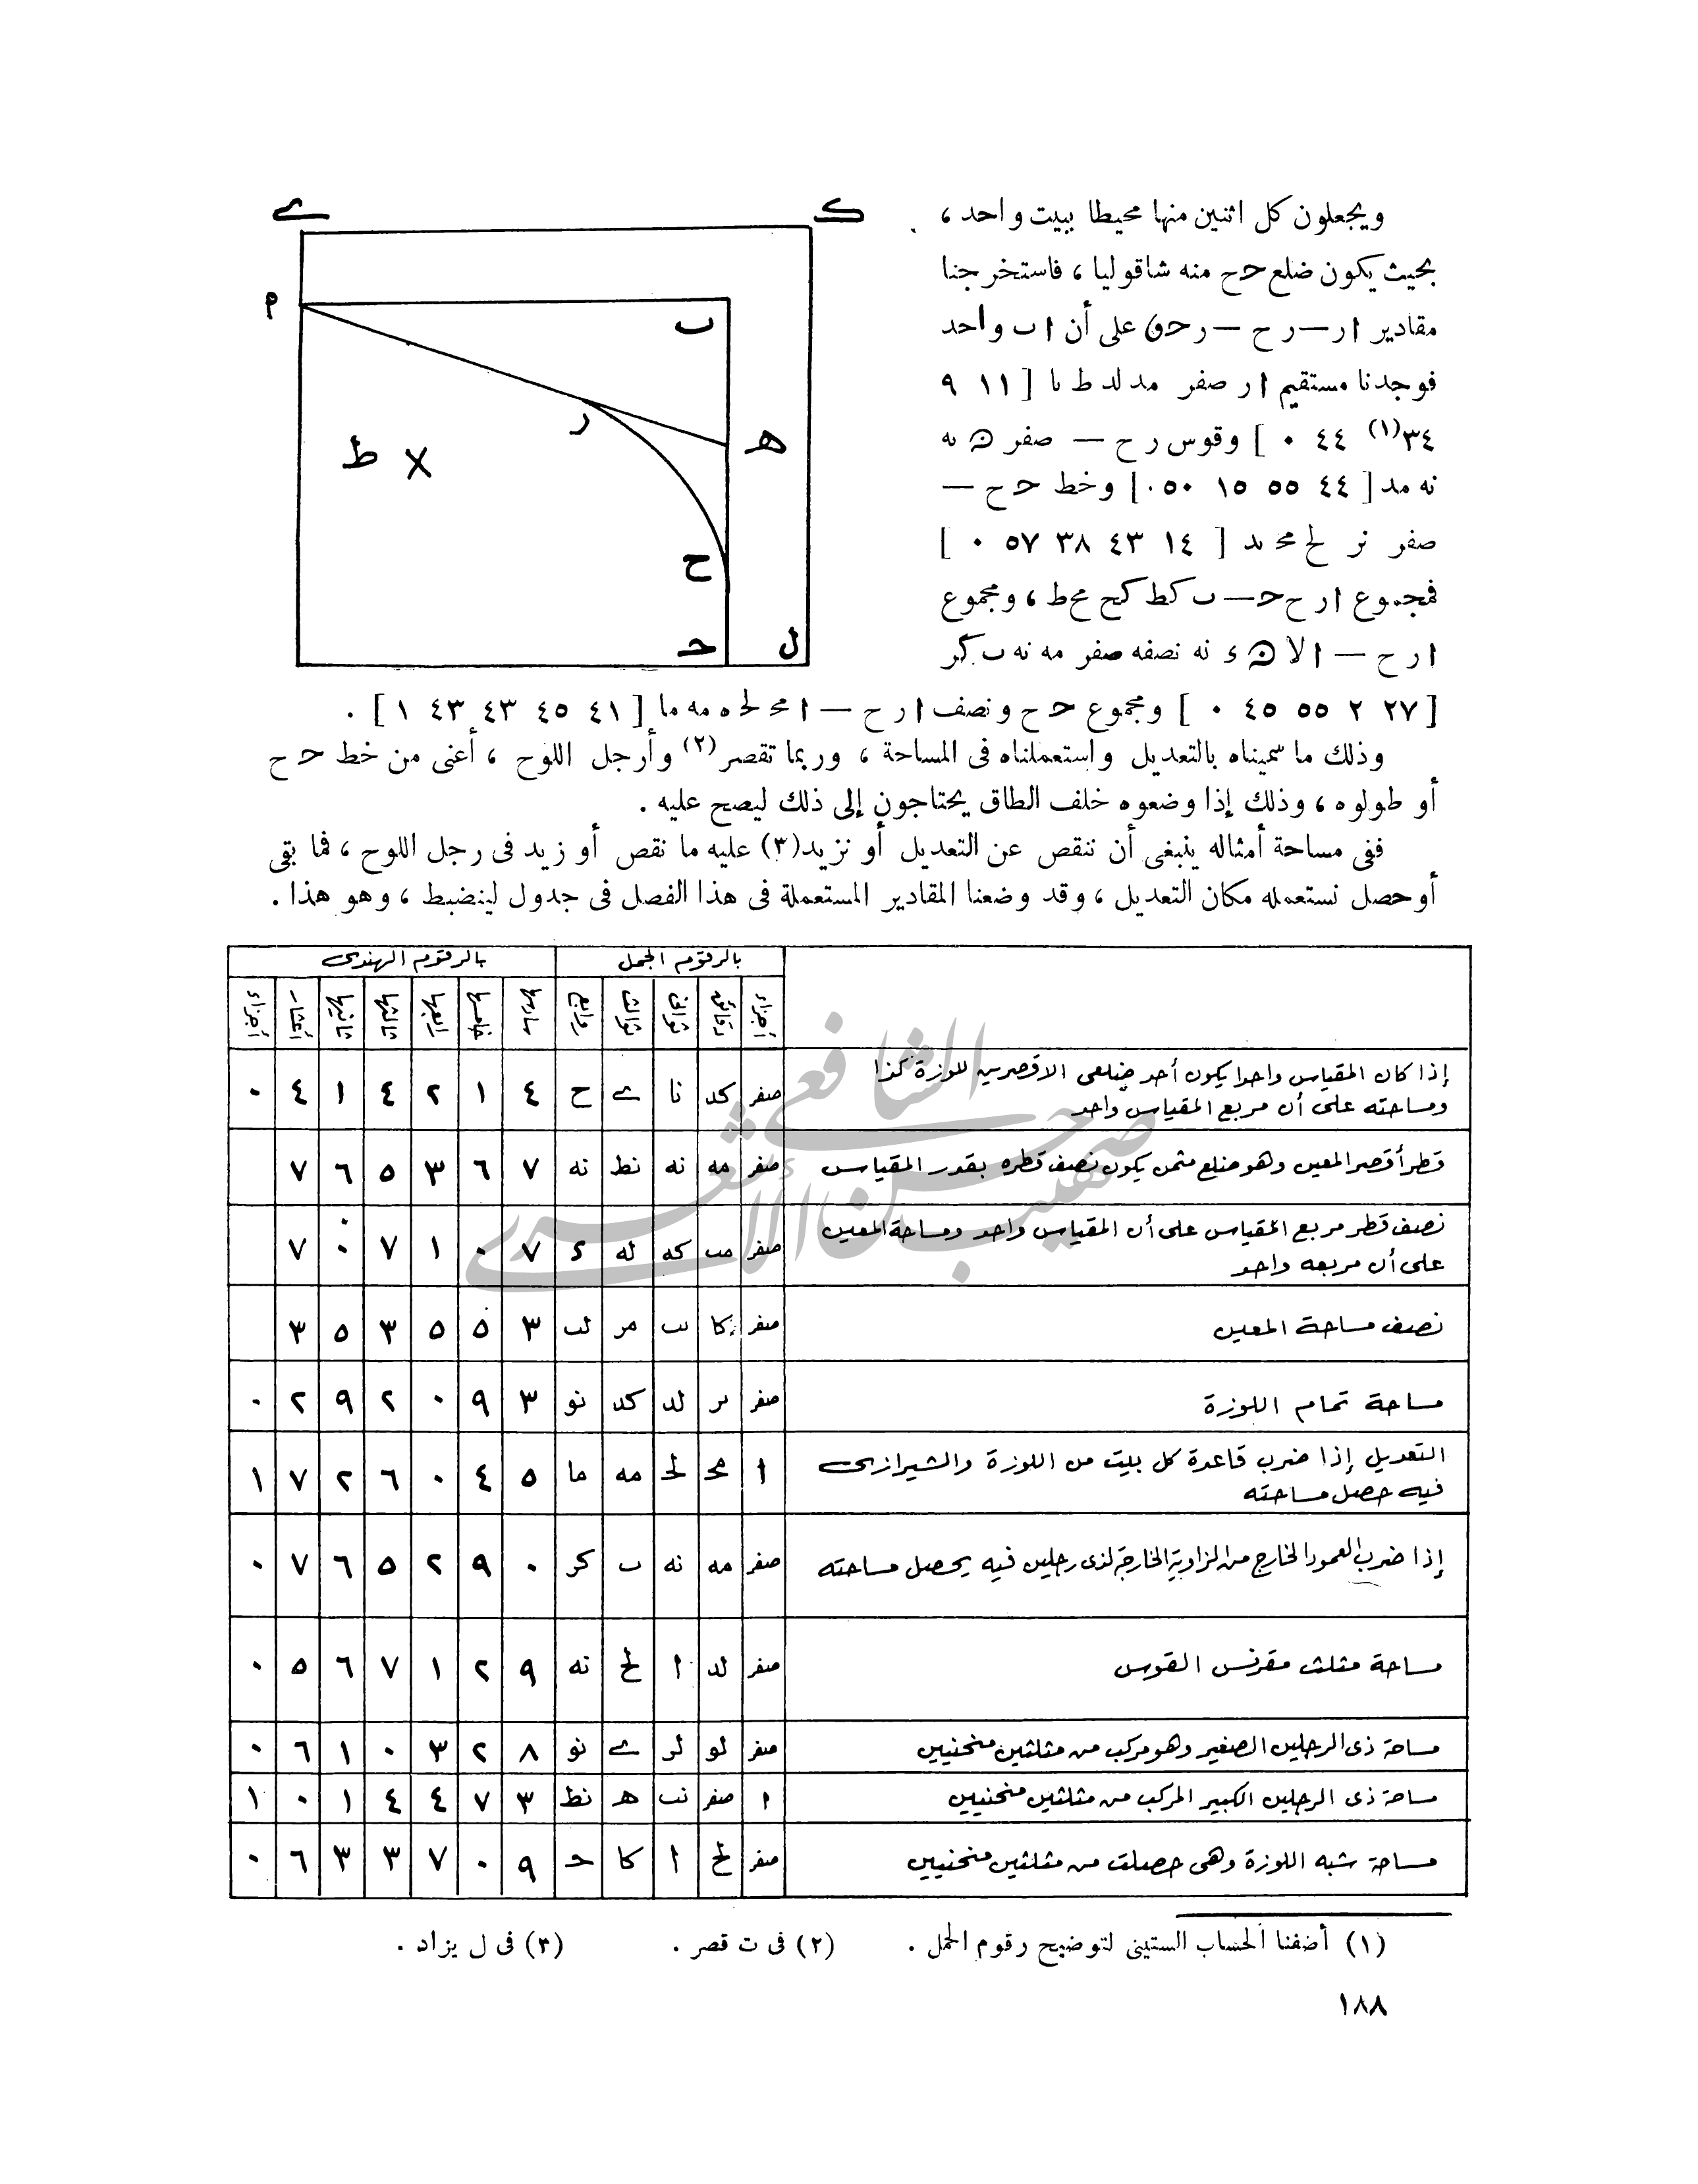 ويجعلون كل اثنين منها محيطا ببيت واحد ،
بحيث يكون ضلع حـ ح منه شاقوليا ، فاستخرجنا
مقادير ا ر — ر ح — ر حـ ق على أن ا ب واحد
فوجدنا مستقيم ا ر صفر مد لد ط يا [ ١١ ٩
٣٤(١) ٤٤ ٠ ] وقوس ر ح — صفر ن يه
نه مد [ ٤٤ ٥٥ ١٥ ٥٠ ٠ ] وخط حـ ح —
صفر نز لح مح يد [ ١٤ ٤٣ ٣٨ ٥٧ ٠ ]
فمجموع ا ر ح حـ — ب كط كح مح ط ، ومجموع
ا ر ح — ا لا ن ء نه نصفه صفر مه نه ب كز
[ ٢٧ ٢ ٥٥ ٤٥ ٠ ] ومجموع حـ ح ونصف ا ر ح — ا مح لح ه مه ما [ ٤١ ٤٥ ٤٣ ٤٣ ١ ] .
وذلك ما سميناه بالتعديل واستعملناه فى المساحة ، وربما تقصر(٢) وأرجل اللوح ، أعنى من خط حـ ح
أو طولوه ، وذلك إذا وضعوه خلف الطاق يحتاجون إلى ذلك ليصح عليه .
ففى مساحة أمثاله ينبغى أن ننقص عن التعديل أو نزيد(٣) عليه ما نقص أو زيد فى رجل اللوح ، فما بقى
أو حصل نستعمله مكان التعديل ، وقد وضعنا المقادير المستعملة فى هذا الفصل فى جدول لينضبط ، وهو هذا .
ك ے
ا ب
ر هـ
ط
ح
ل حـ
بالرقوم الجمل بالرقوم الهندى
أجزاء دقائق ثوانى ثوالث روابع سادسها خامسها رابعها ثالثها ثانيها أعشار أجزاء
إذا كان المقياس واحدا يكون أحد ضلعى الاقصرين للوزة كذا
ومساحته على أن مربع المقياس واحد صفر كد نا ے ح ٤ ١ ٢ ٤ ١ ٤ ٠
قطر أقصر المعين وهو ضلع مثمن يكون نصف قطره بقدر المقياس صفر مه نه نط نه ٧ ٦ ٣ ٥ ٦ ٧
نصف قطر مربع المقياس على أن المقياس واحد ومساحة المعين
على أن مربعه واحد صفر مب كه له ء ٧ ٠ ١ ٧ ٠ ٧
نصف مساحة المعين صفر كا يب مر لب ٣ ٥ ٥ ٣ ٥ ٣
مساحة تمام اللوزة صفر ير لد كد نو ٣ ٩ ٠ ٢ ٩ ٢ ٠
التعديل إذا ضرب قاعدة كل بيت من اللوزة والشيرازى
فيه حصل مساحته ا مح لح مه ما ٥ ٤ ٠ ٦ ٢ ٧ ١
إذا ضرب العمود الخارج من الزاوية الخارجة لذى رجلين فيه يحصل مساحته صفر مه نه ب كر ٠ ٩ ٢ ٥ ٦ ٧ ٠
مساحة مثلث مقرنس القوس صفر لد ا لح نه ٩ ٢ ١ ٧ ٦ ٥ ٠
مساحة ذى الرجلين الصغير وهو مركب من مثلثين منحنيين صفر لو لر ے نو ٨ ٢ ٣ ٠ ١ ٦ ٠
مساحة ذى الرجلين الكبير المركب من مثلثين منحنيين ا صفر نب هـ نط ٣ ٧ ٤ ٤ ١ ٠ ١
مساحة شبه اللوزة وهى حصلت من مثلثين منحنيين صفر لح ا كا حـ ٩ ٠ ٧ ٣ ٣ ٦ ٠
(١) أضفنا الحساب الستينى لتوضيح رقوم الجمل . (٢) فى ت قصر . (٣) فى ل يزاد .
١٨٨